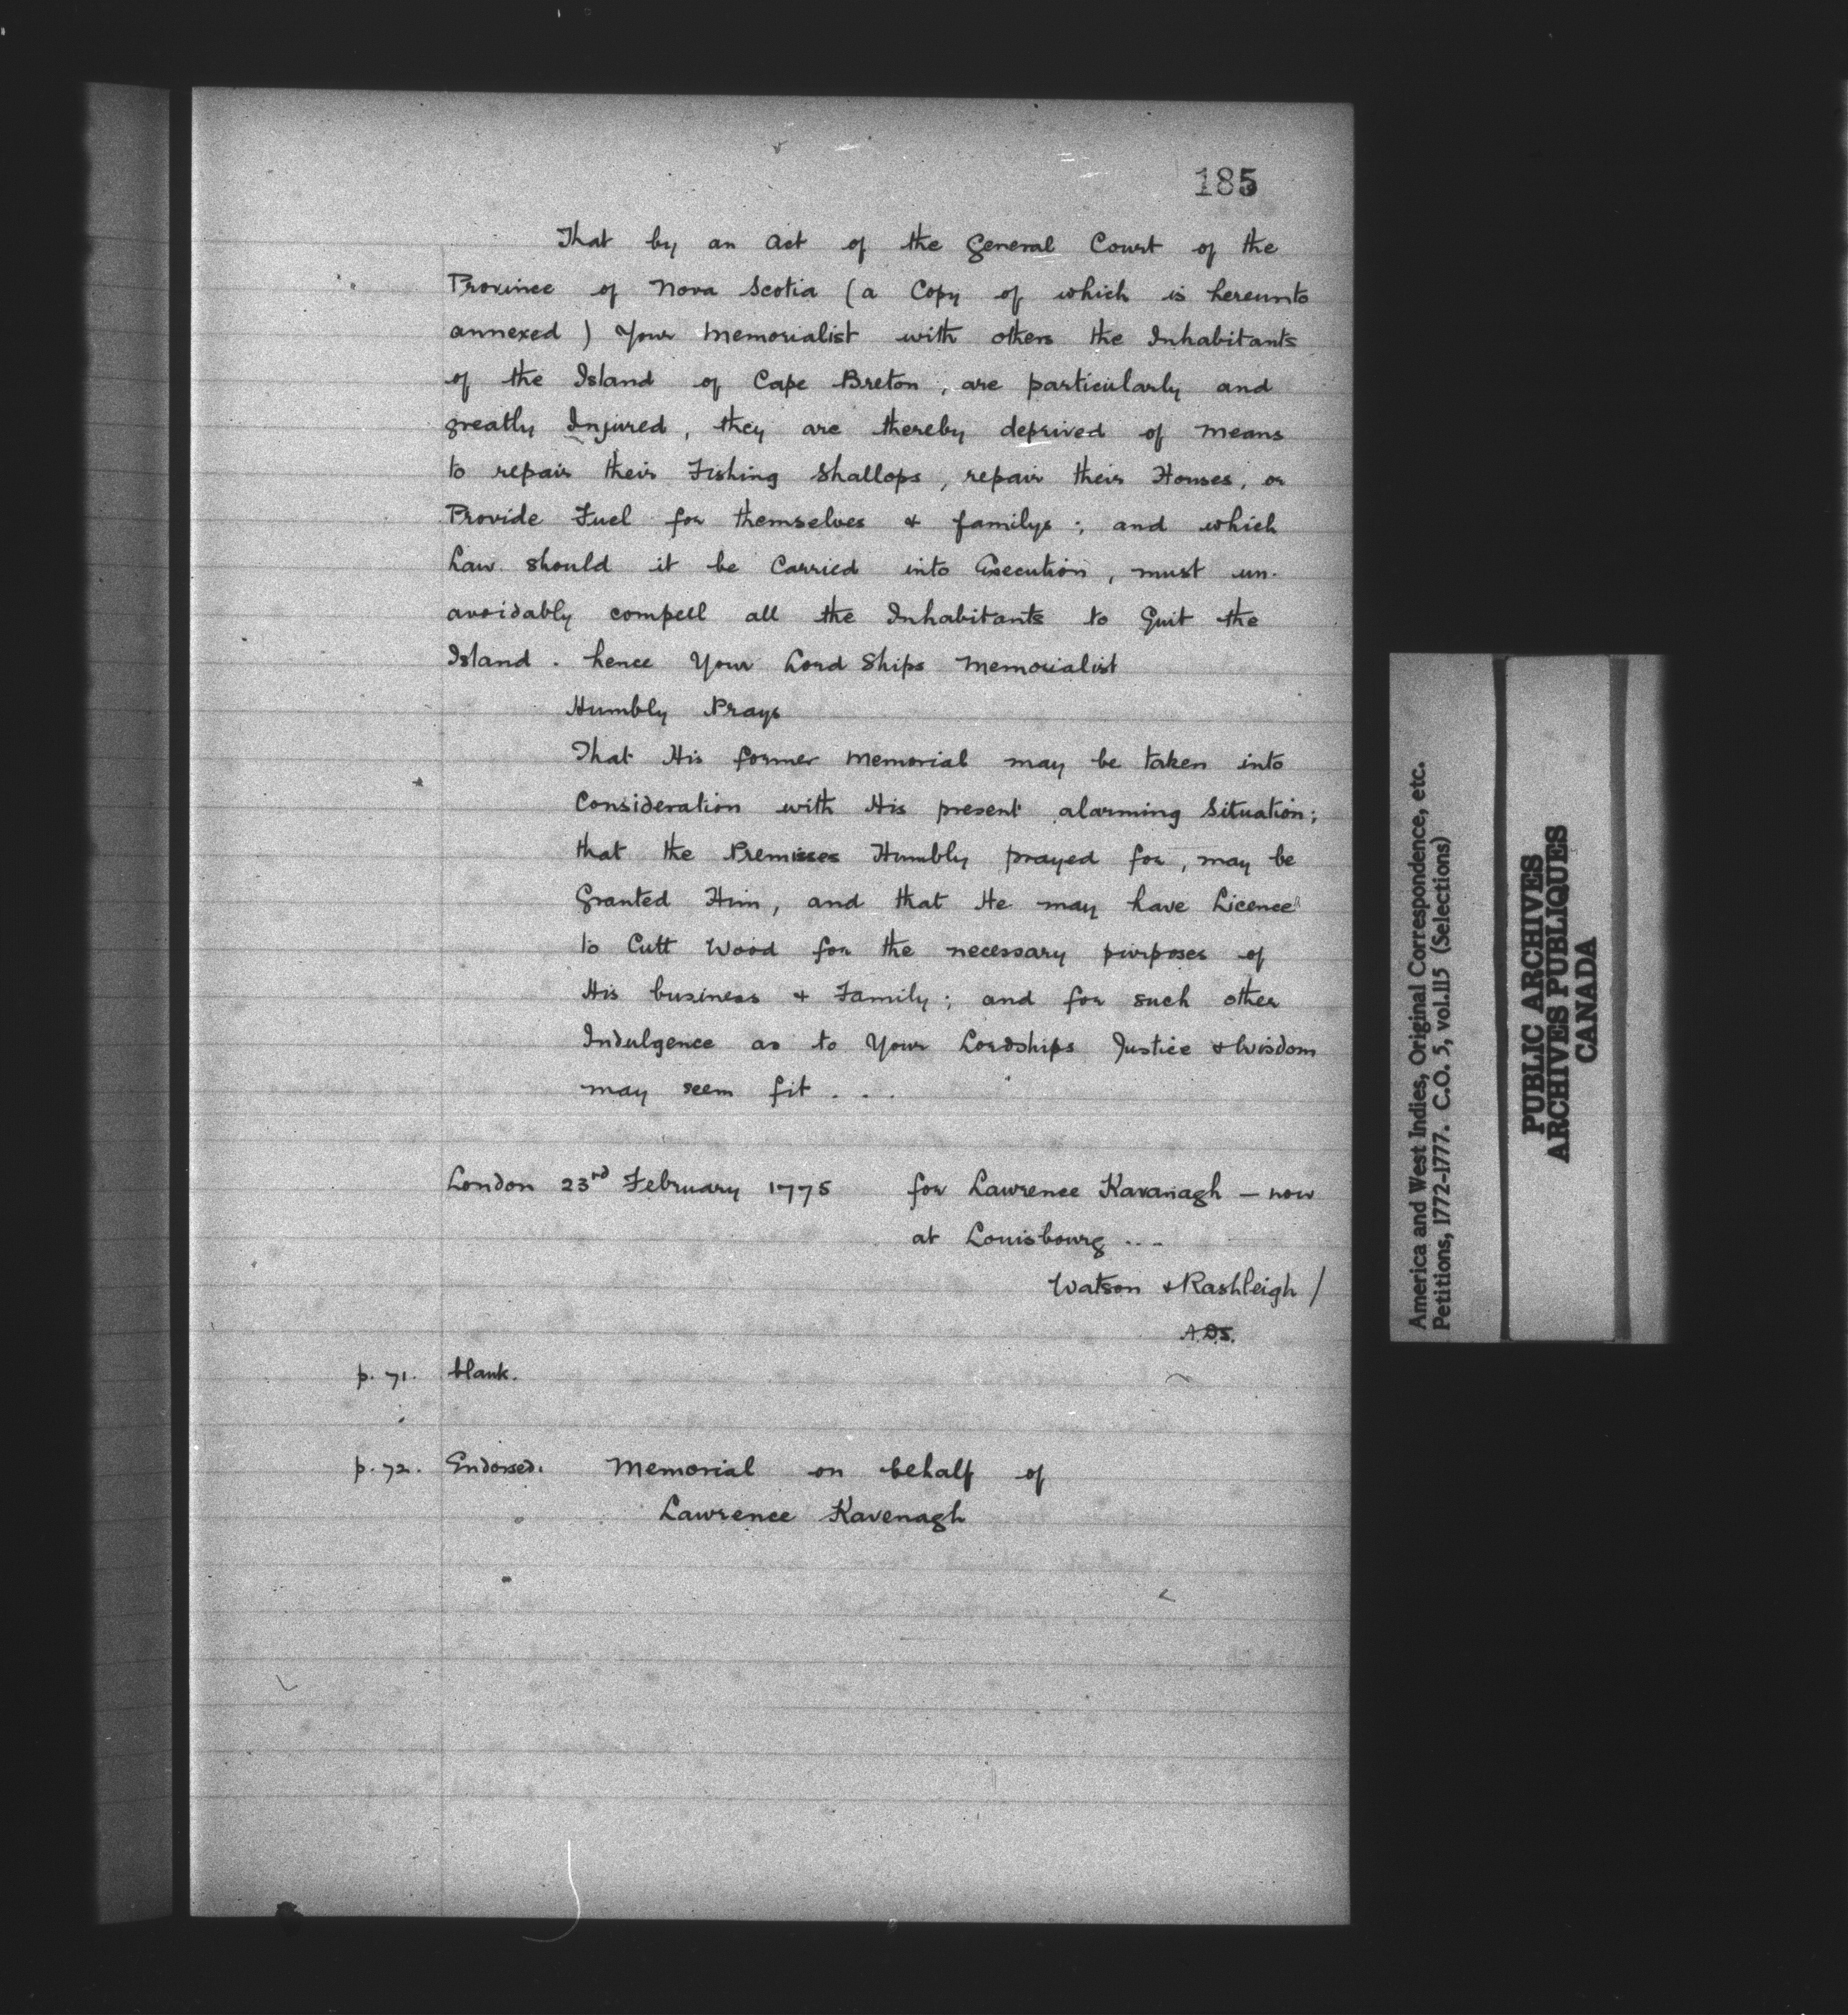 185
That by an Act of the General Court of the
Province of Nova Scotia (a Copy of which is hereunto
annexed) Your Memorialist with others the Inhabitants
of the Island of Cape Breton, are particularly and
greatly Injured, they are thereby deprived of means
to repair their Fishing Shallops, repair their Houses, or
Provide Fuel for themselves & familys; and which
Law should it be Carried into Execution, must un-
avoidably compell all the Inhabitants to Quit the
Island. hence Your Lord Ships Memorialist
Humbly Prays
That His former Memorial may be taken into
Consideration with His present alarming Situation;
that the Premisses Humbly prayed for, may be
Granted Him, and that He may have Licence
to Cutt Wood for the necessary purposes of
His business & Family; and for such other
Indulgence as to Your Lordships Justice & Wisdom
may seem fit . . .
London 23rd February 1775 for Lawrence Kavanagh - now
at Louisbourg ...
Watson & Rashleigh /
A.D.S.
p. 71. blank.
p. 72. Endorsed. Memorial on behalf of
Lawrence Kavenagh
America and West Indies, Original Correspondence, etc.
Petitions, 1772-1777. C.O. 5, vol.115 (Selections)
PUBLIC ARCHIVES
ARCHIVES PUBLIQUES
CANADA